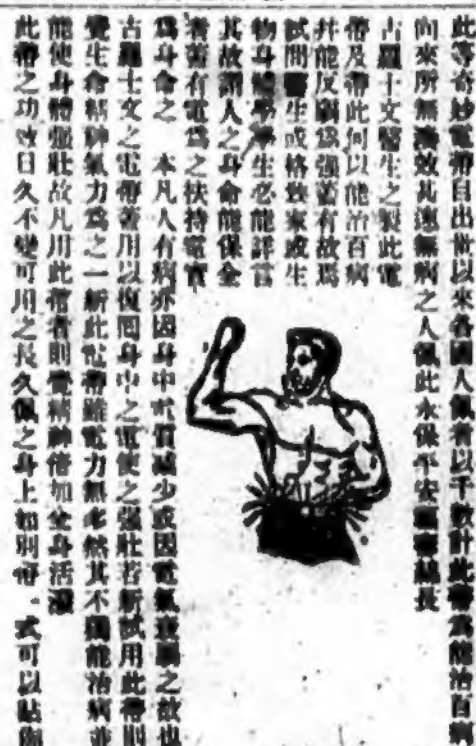 此等奇妙電帶自出世以來各國人買者以千數計此帶為能治百病
向來所無 效其速無病之人佩此永保平安 壽 長
古羅士文醫生之製此電
帶及帶此何以能治百病
并能反弱為强蓋有故焉
試問醫生或格致家或生
物身體學 生必能詳言
其故謂人之身命能保全
者蓋有電為之扶持電實
為身命之 本凡人有病亦因身中電質減少或因電氣衰弱之故也
古羅士文之電帶着用以復回身中之電使之强壯若新試用此帶則
覺生命精神氣力為之一新此電帶雖電力無多然其不獨能治病並
能使身體强壯故凡用此帶者則覺精神倍加全身活潑
此帶之功效日久不變可用之長久佩之身上如別帶 式可以貼